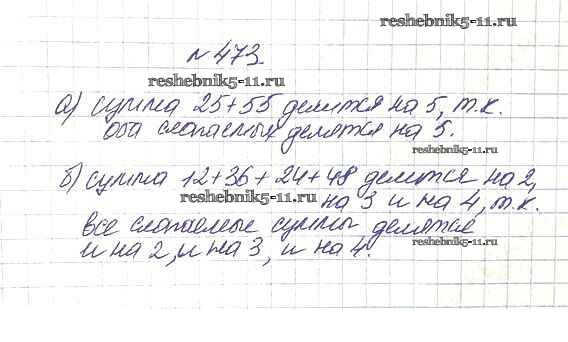 reshebnik5-11.ru.
№473.
reshebnik5-11.ru
а) сумма 25+55 делится на 5, т.к.
оба слагаемых делятся на 5.
reshebnik5-11.ru.
б) сумма 12+36+24+48 делится на 2,
reshebnik5-11.ru
на 3 и на 4, т.к.
все слагаемые суммы делятся
reshebnik5-11.ru
и на 2, и на 3, и на 4.